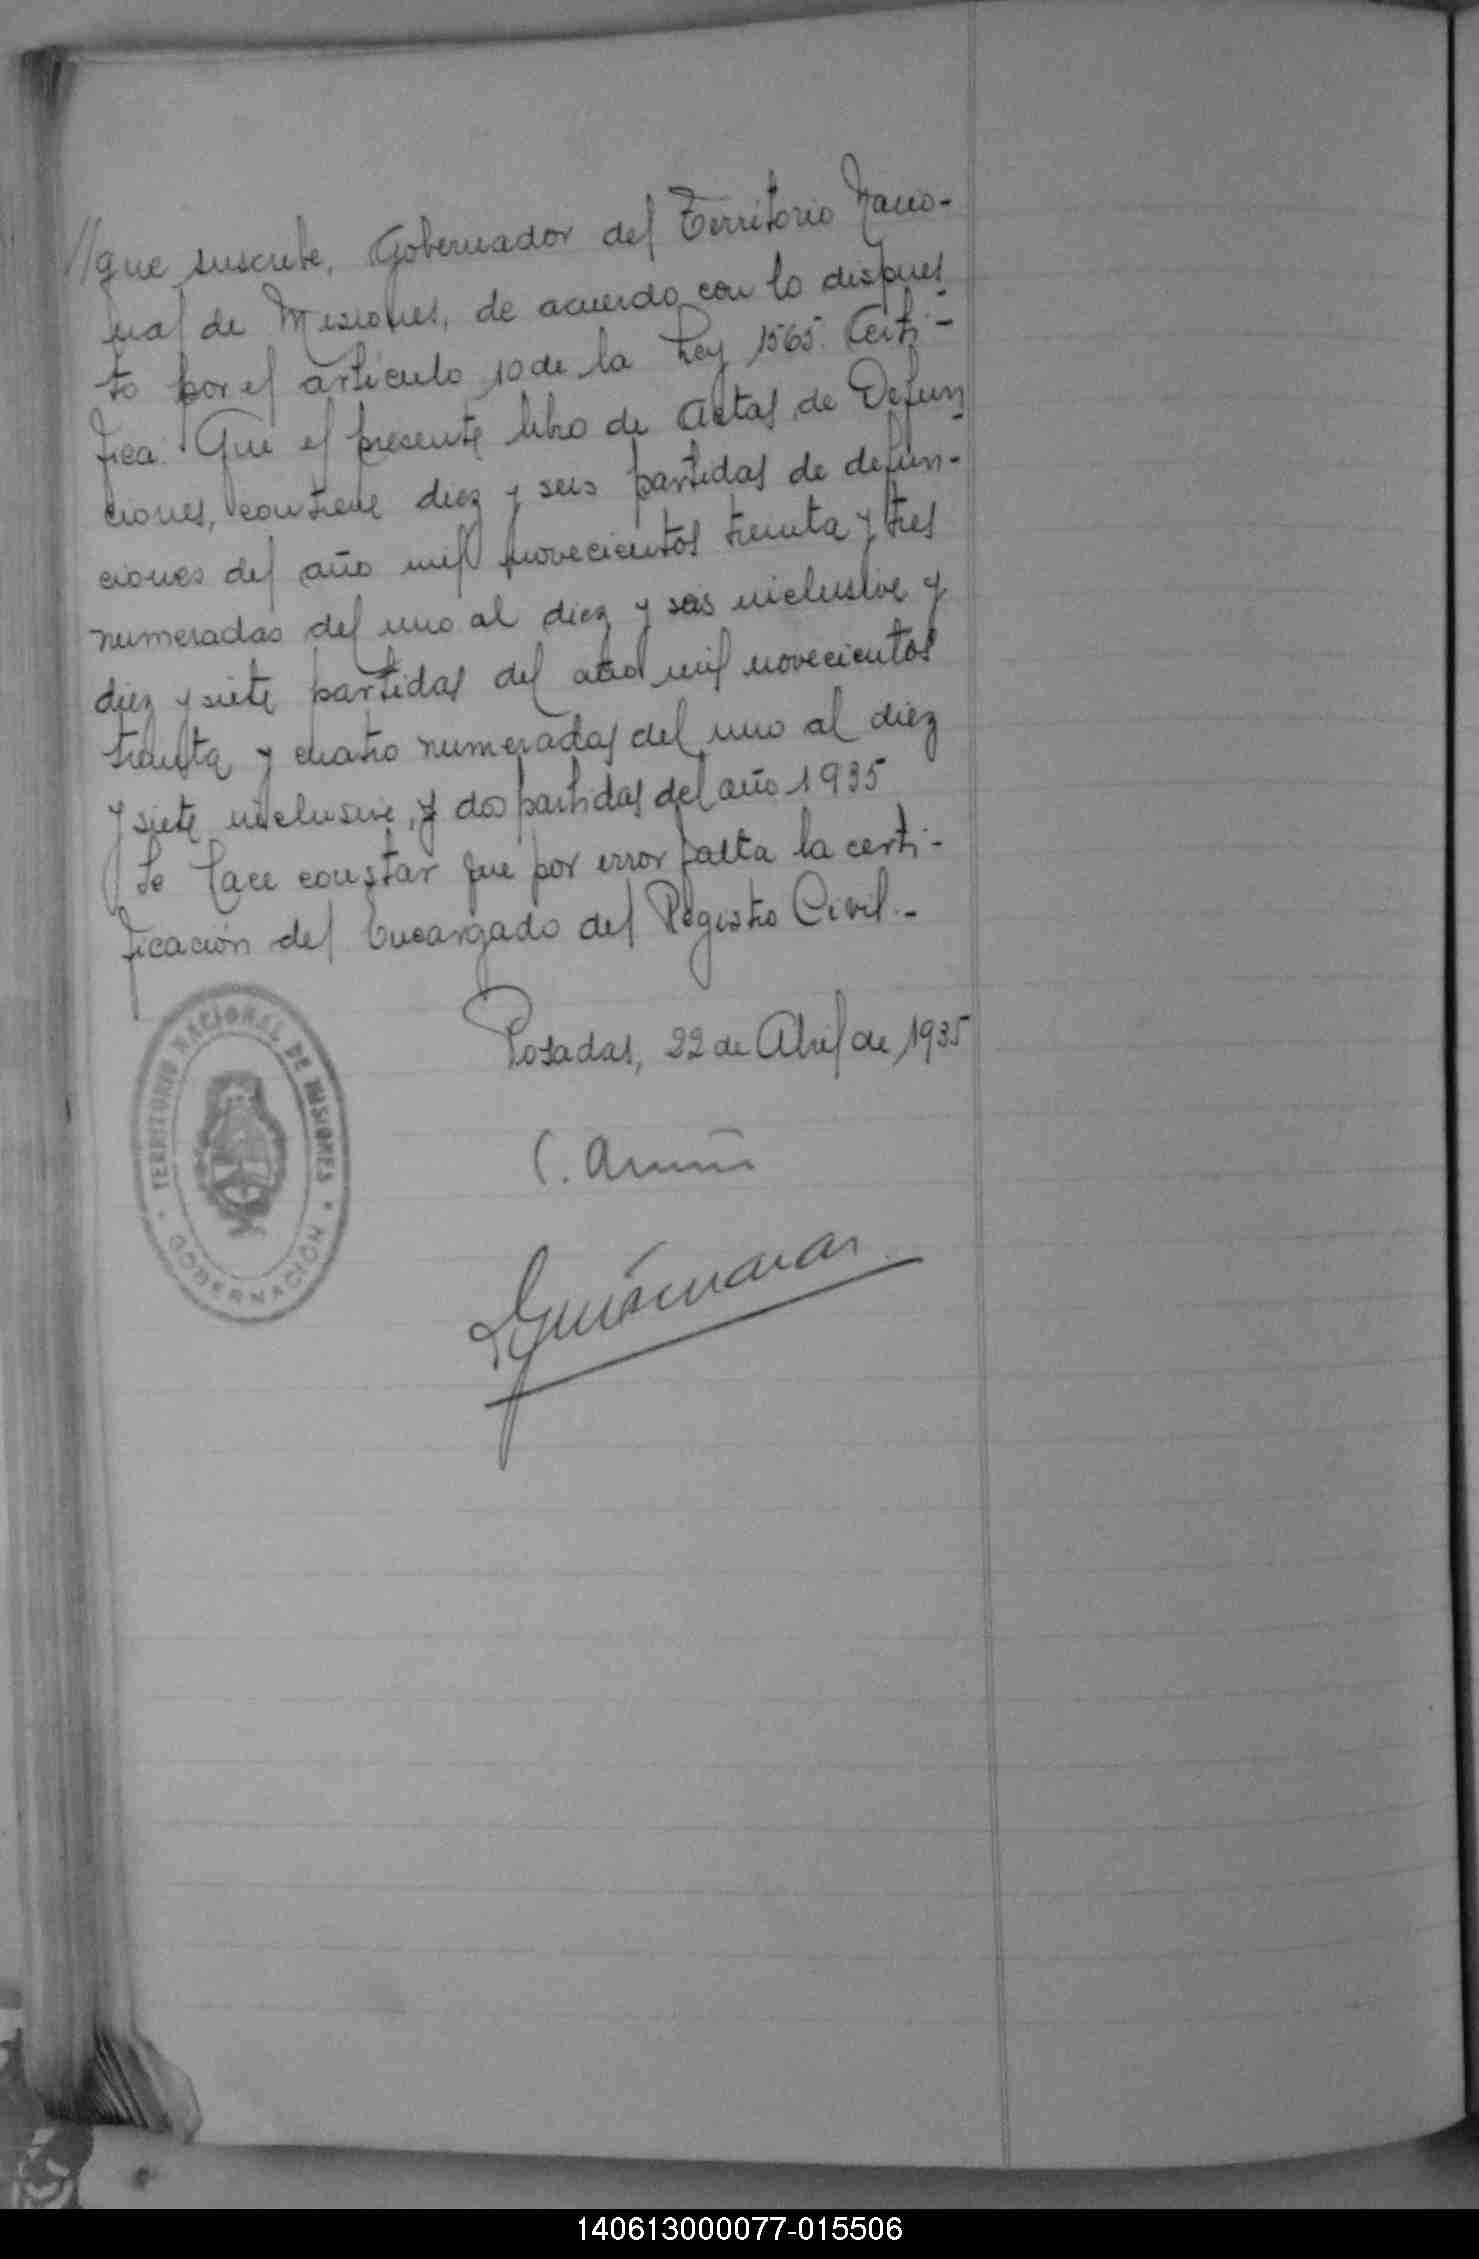 //que suscribe, Gobernador del Territorio Nacio-
nal de Misiones, de acuerdo con lo dispues
to por el artículo 10 de la Ley 1565. Certi-
fica: Que el presente libro de Actas de Defun
ciones, contiene diez y seis partidas de defun-
ciones del año mil novecientos treinta y tres
numeradas del uno al diez y seis inclusive y
diez y siete partidas del año mil novecientos
treinta y cuatro numeradas del uno al diez
y siete inclusive, y dos partidas del año 1935
Se hace constar que por error falta la certi-
ficación del Encargado del Registro Civil.-
Posadas, 22 de Abril de 1935
TERRITORIO NACIONAL DE MISIONES
GOBERNACIÓN
C.
140613000077-015506